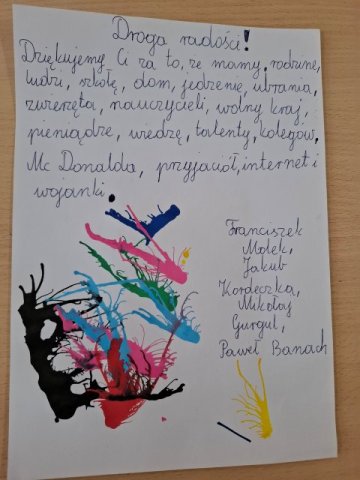 Droga radości!
Dziękujemy Ci za to, że mamy rodzinę,
ludzi, szkołę, dom, jedzenie, ubrania,
zwierzęta, nauczycieli, wolny kraj,
pieniądze, wiedzę, talenty, kolegów,
Mc Donalda, przyjaciół, internet i
wojanki.
Franciszek
Molek,
Jakub
Kordeczka,
Mikołaj
Gurgul,
Paweł Banach